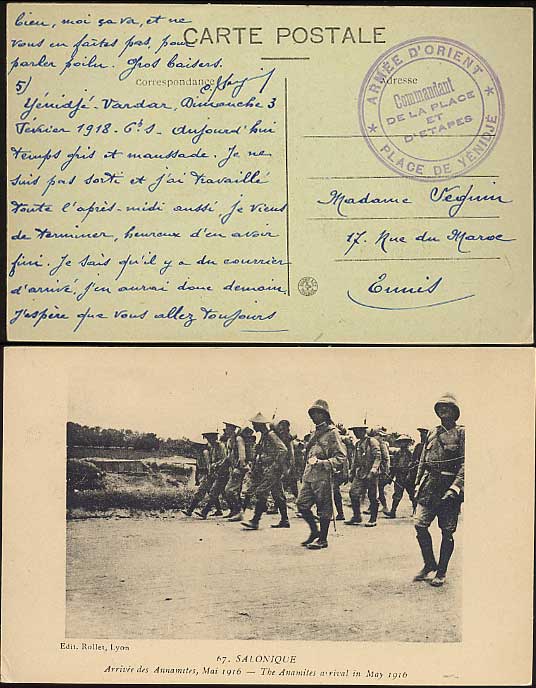 bien, moi ça va, et ne
vous en faites pas, pour
parler poilu. Gros baisers.
CARTE POSTALE
Correspondance
Adresse
5)
Yénidjé-Vardar, Dimanche 3
Février 1918 - 6h S - Aujourd'hui
temps gris et maussade. Je ne
suis pas sorti et j'ai travaillé
toute l'après-midi aussi. Je viens
de terminer, heureux d'en avoir
fini. Je sais qu'il y a du courrier
d'arrivé, j'en aurai donc demain.
J'espère que vous allez toujours
ARMÉE D'ORIENT
Commandant
DE LA PLACE
ET
D'ETAPES
★ PLACE DE YÉNIDJÉ ★
Madame Seguin
17. Rue du Maroc
Tunis
Edit. Rollet, Lyon
67. SALONIQUE
Arrivée des Annamites, Mai 1916 — The Anamites arrival in May 1916